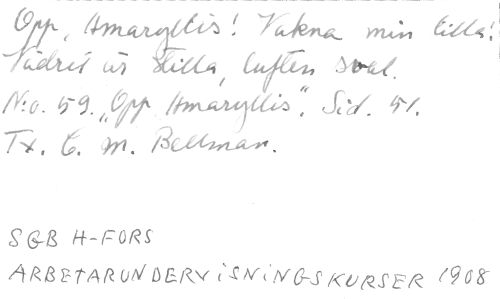 Opp, Amaryllis! Vakna min lilla!
Vädret är stilla, luften sval.
N:o. 59. "Opp Amaryllis". Sid. 51.
Tx. C. M. Bellman.
SGB H-FORS
ARBETARUNDERVISNINGSKURSER 1908